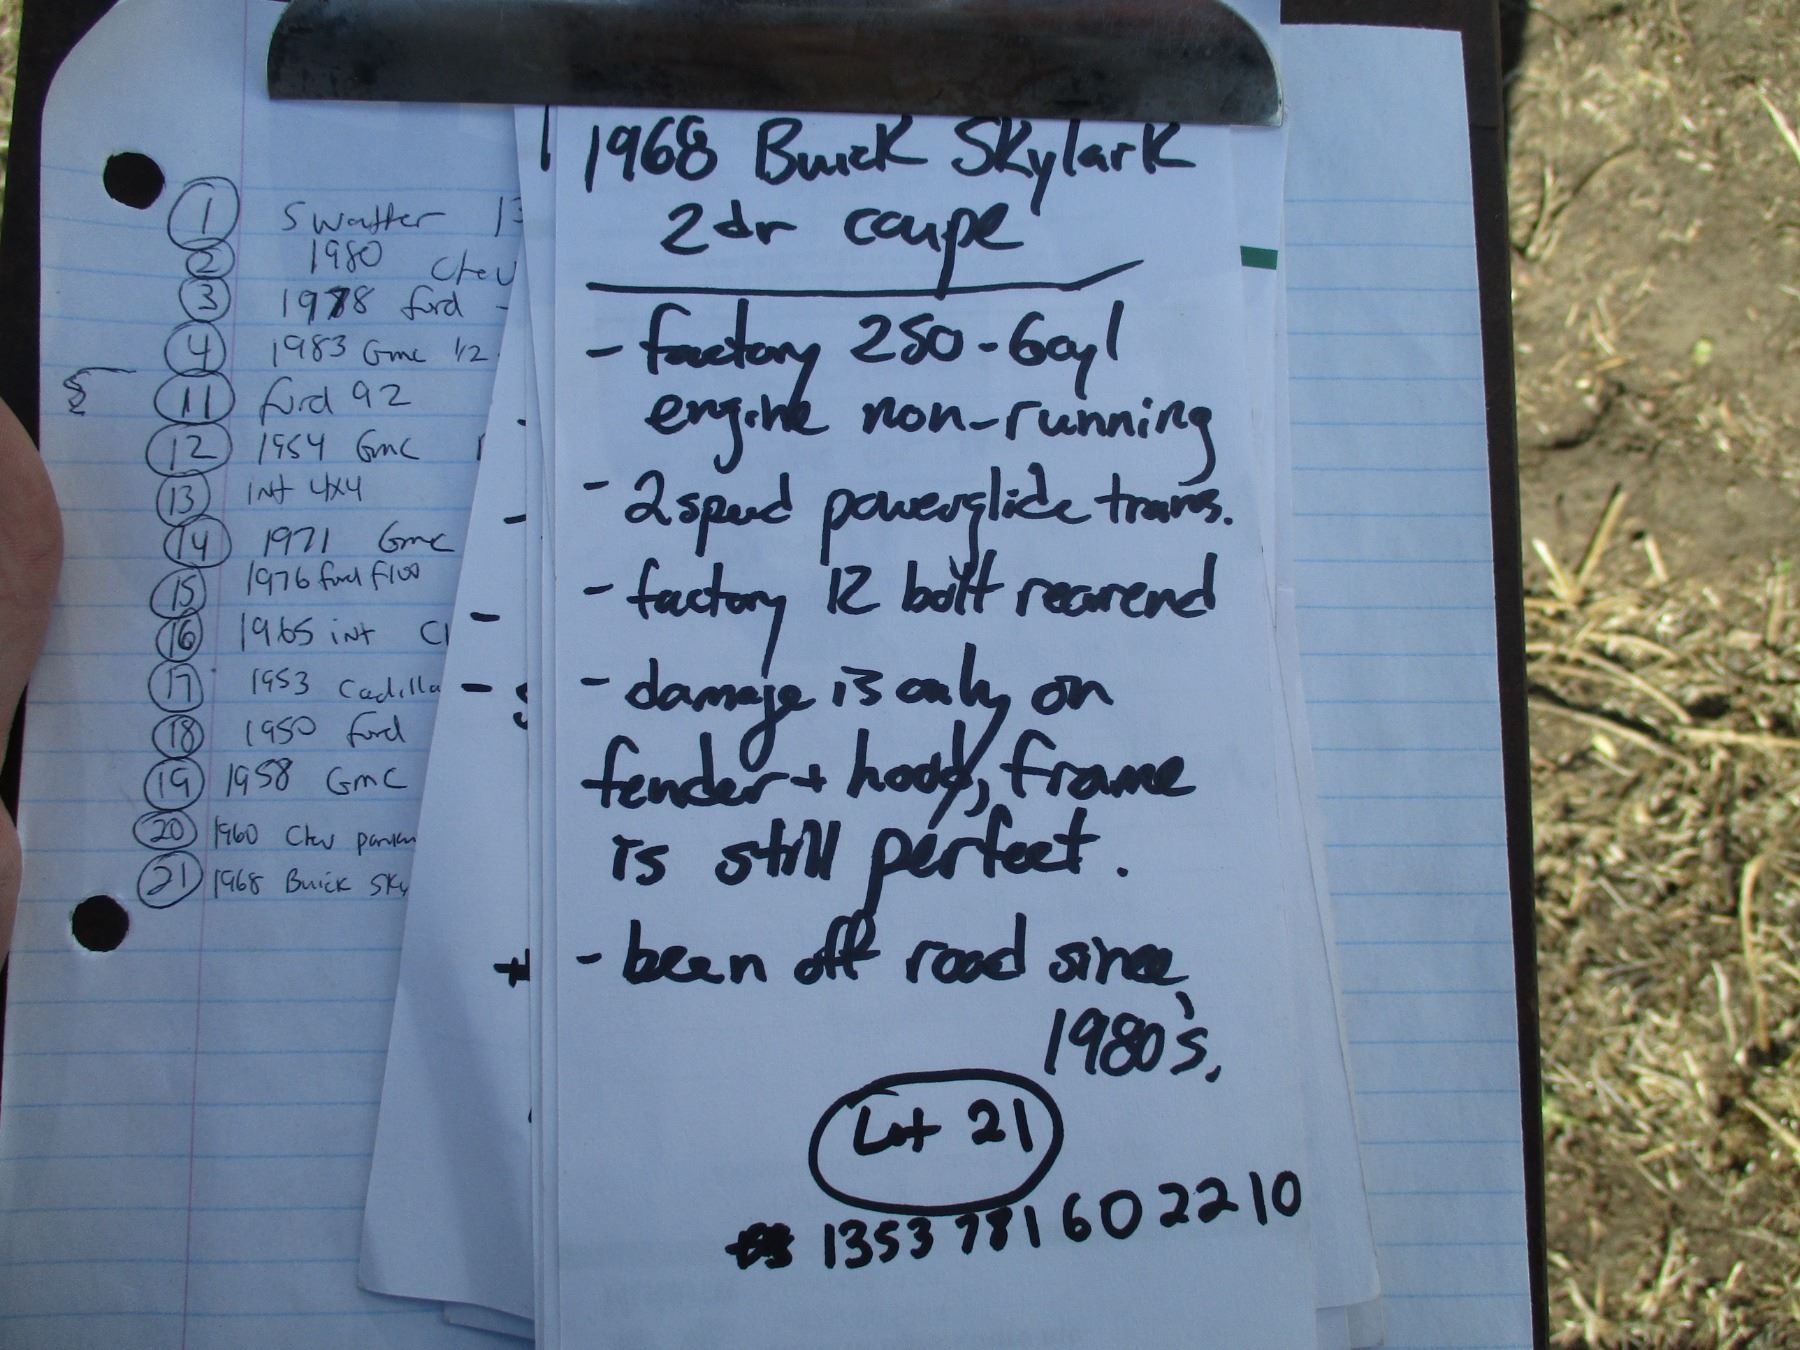 1 Swatter 13
2 1980 Chev
3 1978 ford -
4 1983 Gmc 1/2
11 ford 92
12 1954 Gmc
13 int 4x4
14 1971 Gmc
15 1976 ford F100
16 1965 int
17 1953 Cadilla
18 1950 ford
19 1958 Gmc
20 1960 Chev
21 1968 Buick Sky
1968 Buick Skylark
2dr coupe
- factory 250-6cyl
engine non-running
- 2 speed powerglide trans.
- factory 12 bolt rearend
- damage is only on
fender + hood, frame
is still perfect.
- been off road since
1980's.
Lot 21
1353781602210